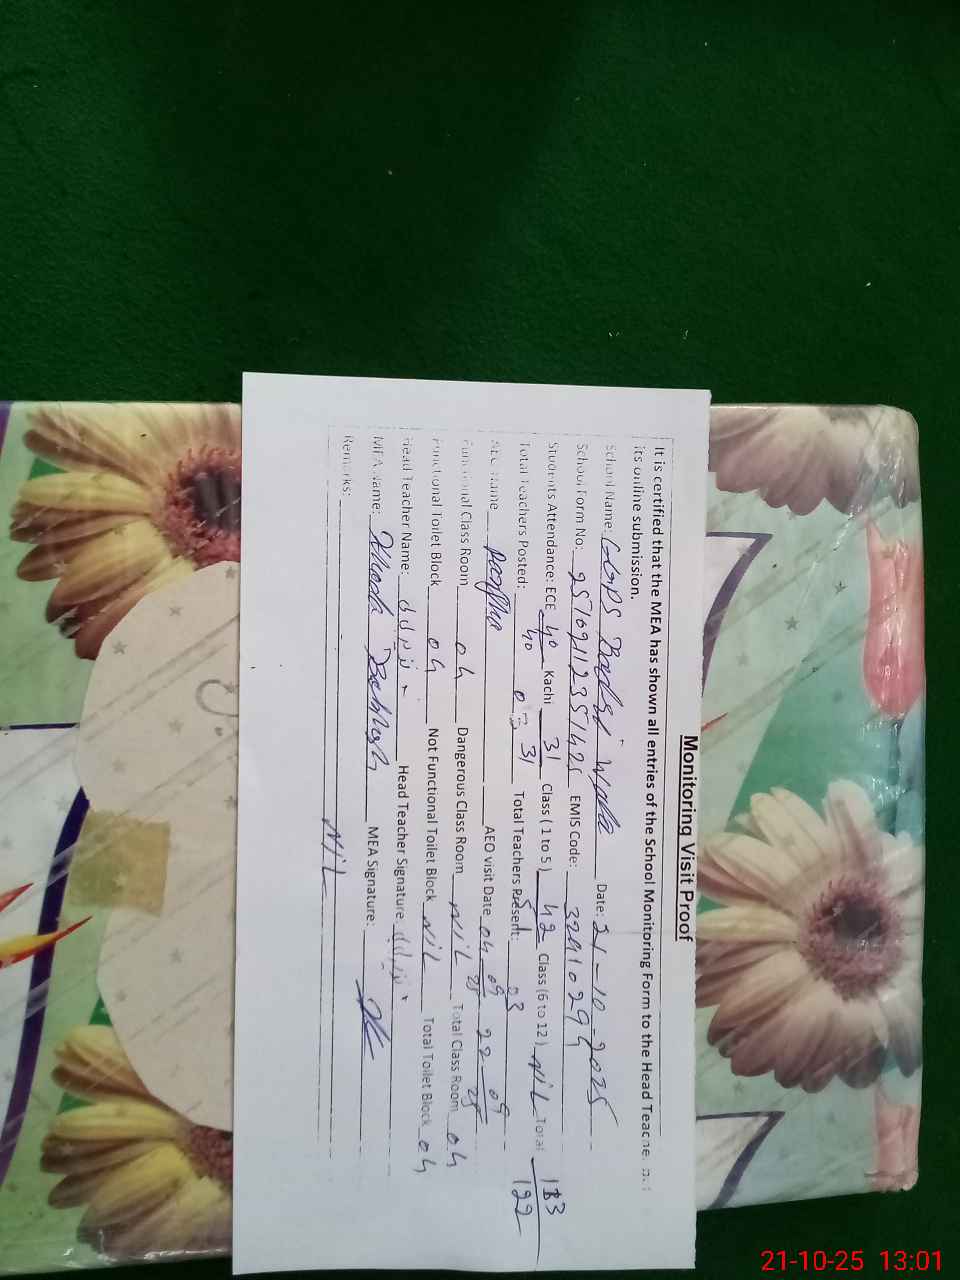 Monitoring Visit Proof
It is certified that the MEA has shown all entries of the School Monitoring Form to the Head Teacher
its online submission.
School Name: GGPS Wala Date: 21-10-2025
School Form No: EMIS Code:
Students Attendance: ECE 40/40 Kachi 31/31 Class (1 to 5) 42/51 Class (6 to 12) NIL Total 113/122
Total Teachers Posted: 03 Total Teachers Present: 03
AEO Name AEO visit Date 04 09/25 22 09/25
Functional Class Room 04 Dangerous Class Room NIL Total Class Room 04
Functional Toilet Block 04 Not Functional Toilet Block NIL Total Toilet Block 04
Head Teacher Name: Head Teacher Signature
MEA Name: MEA Signature:
Remarks: NIL
21-10-25 13:01